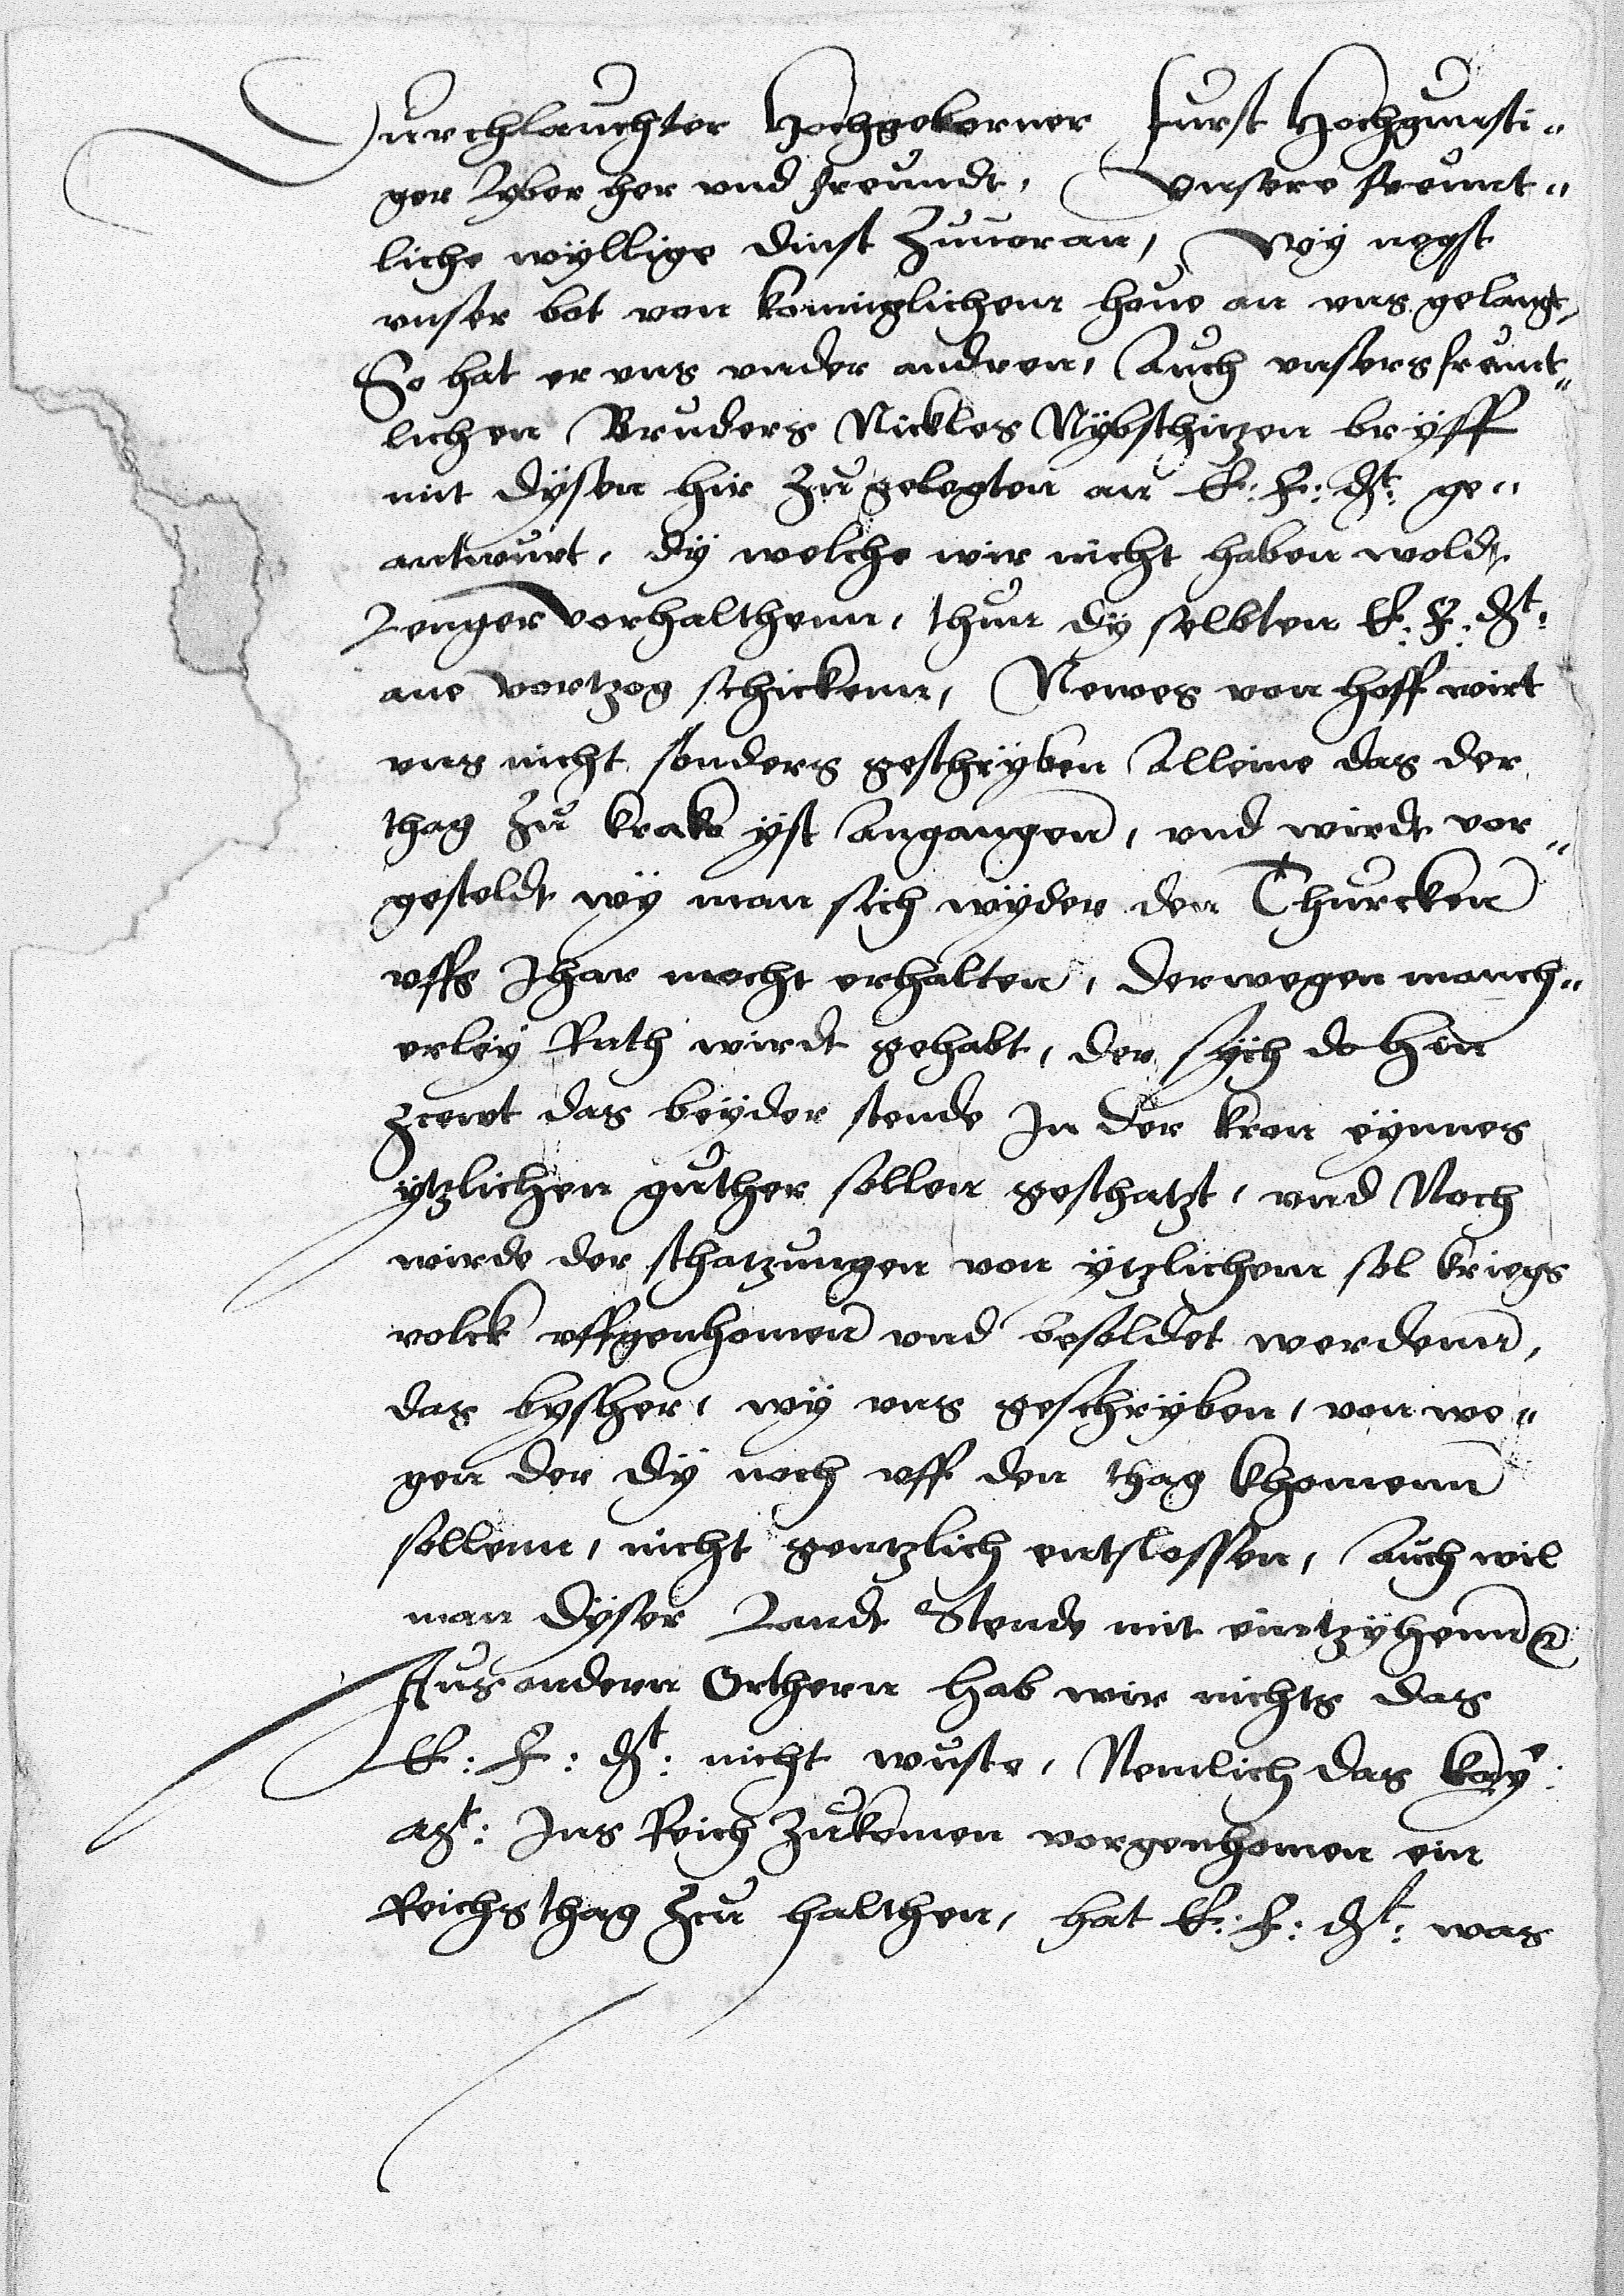 Durchlauchter Hochgeborner furst Hochgunsti„
ger lyber her vnd freundt, Vnsere freunt„
liche wyllige dinst Zuuoran, Wy negst
vnser bot von koniglichem houe an vns gelangt,
So hat er vns vnder andren, Auch vnsers freunt„
lichen Bruders Nickles Nybschitzen bryff
mit dysen hir zugelegten an E: F: dt: ge„
antwurt, dy welche wir nicht haben woldt
Lenger vorhalthenn, thun dy selbten E: F: dt:
ane vortzog schickenn, Newes von hoff wirt
vns nicht sonders geschryben Alleine das der
thag zu krako yst Angangen, vnd wirdt vor„
gesteldt wy man sich wyder den Thurcken
vffs Jhar mocht erhalten, derwegen manch„
erley Rath wirdt gehabt, der sych do hin
zcewt das beyder stende Jn der kron eynnes
ytzlichen guther sollen geschatzt, vnd Noch
wirde der schatzungen von ytzlichem sol kriegs
volck vffgenhomen vnd besoldet werdenn,
das byssher, wy vns geschryben, von we„
gen der dy noch vff den thag khomenn
sollenn, nicht gentzlich entslossen, Auch wil
man dyser Landt Stende mit eintzyhenn
Aus andern Orthern hab wir nichts das
E: F: dt: nicht wuste, Nemlich das kay:
Mt: Jns Reich zukomen vorgenhomen ein
Reichsthag zcu halthen, hat E: F: dt: was